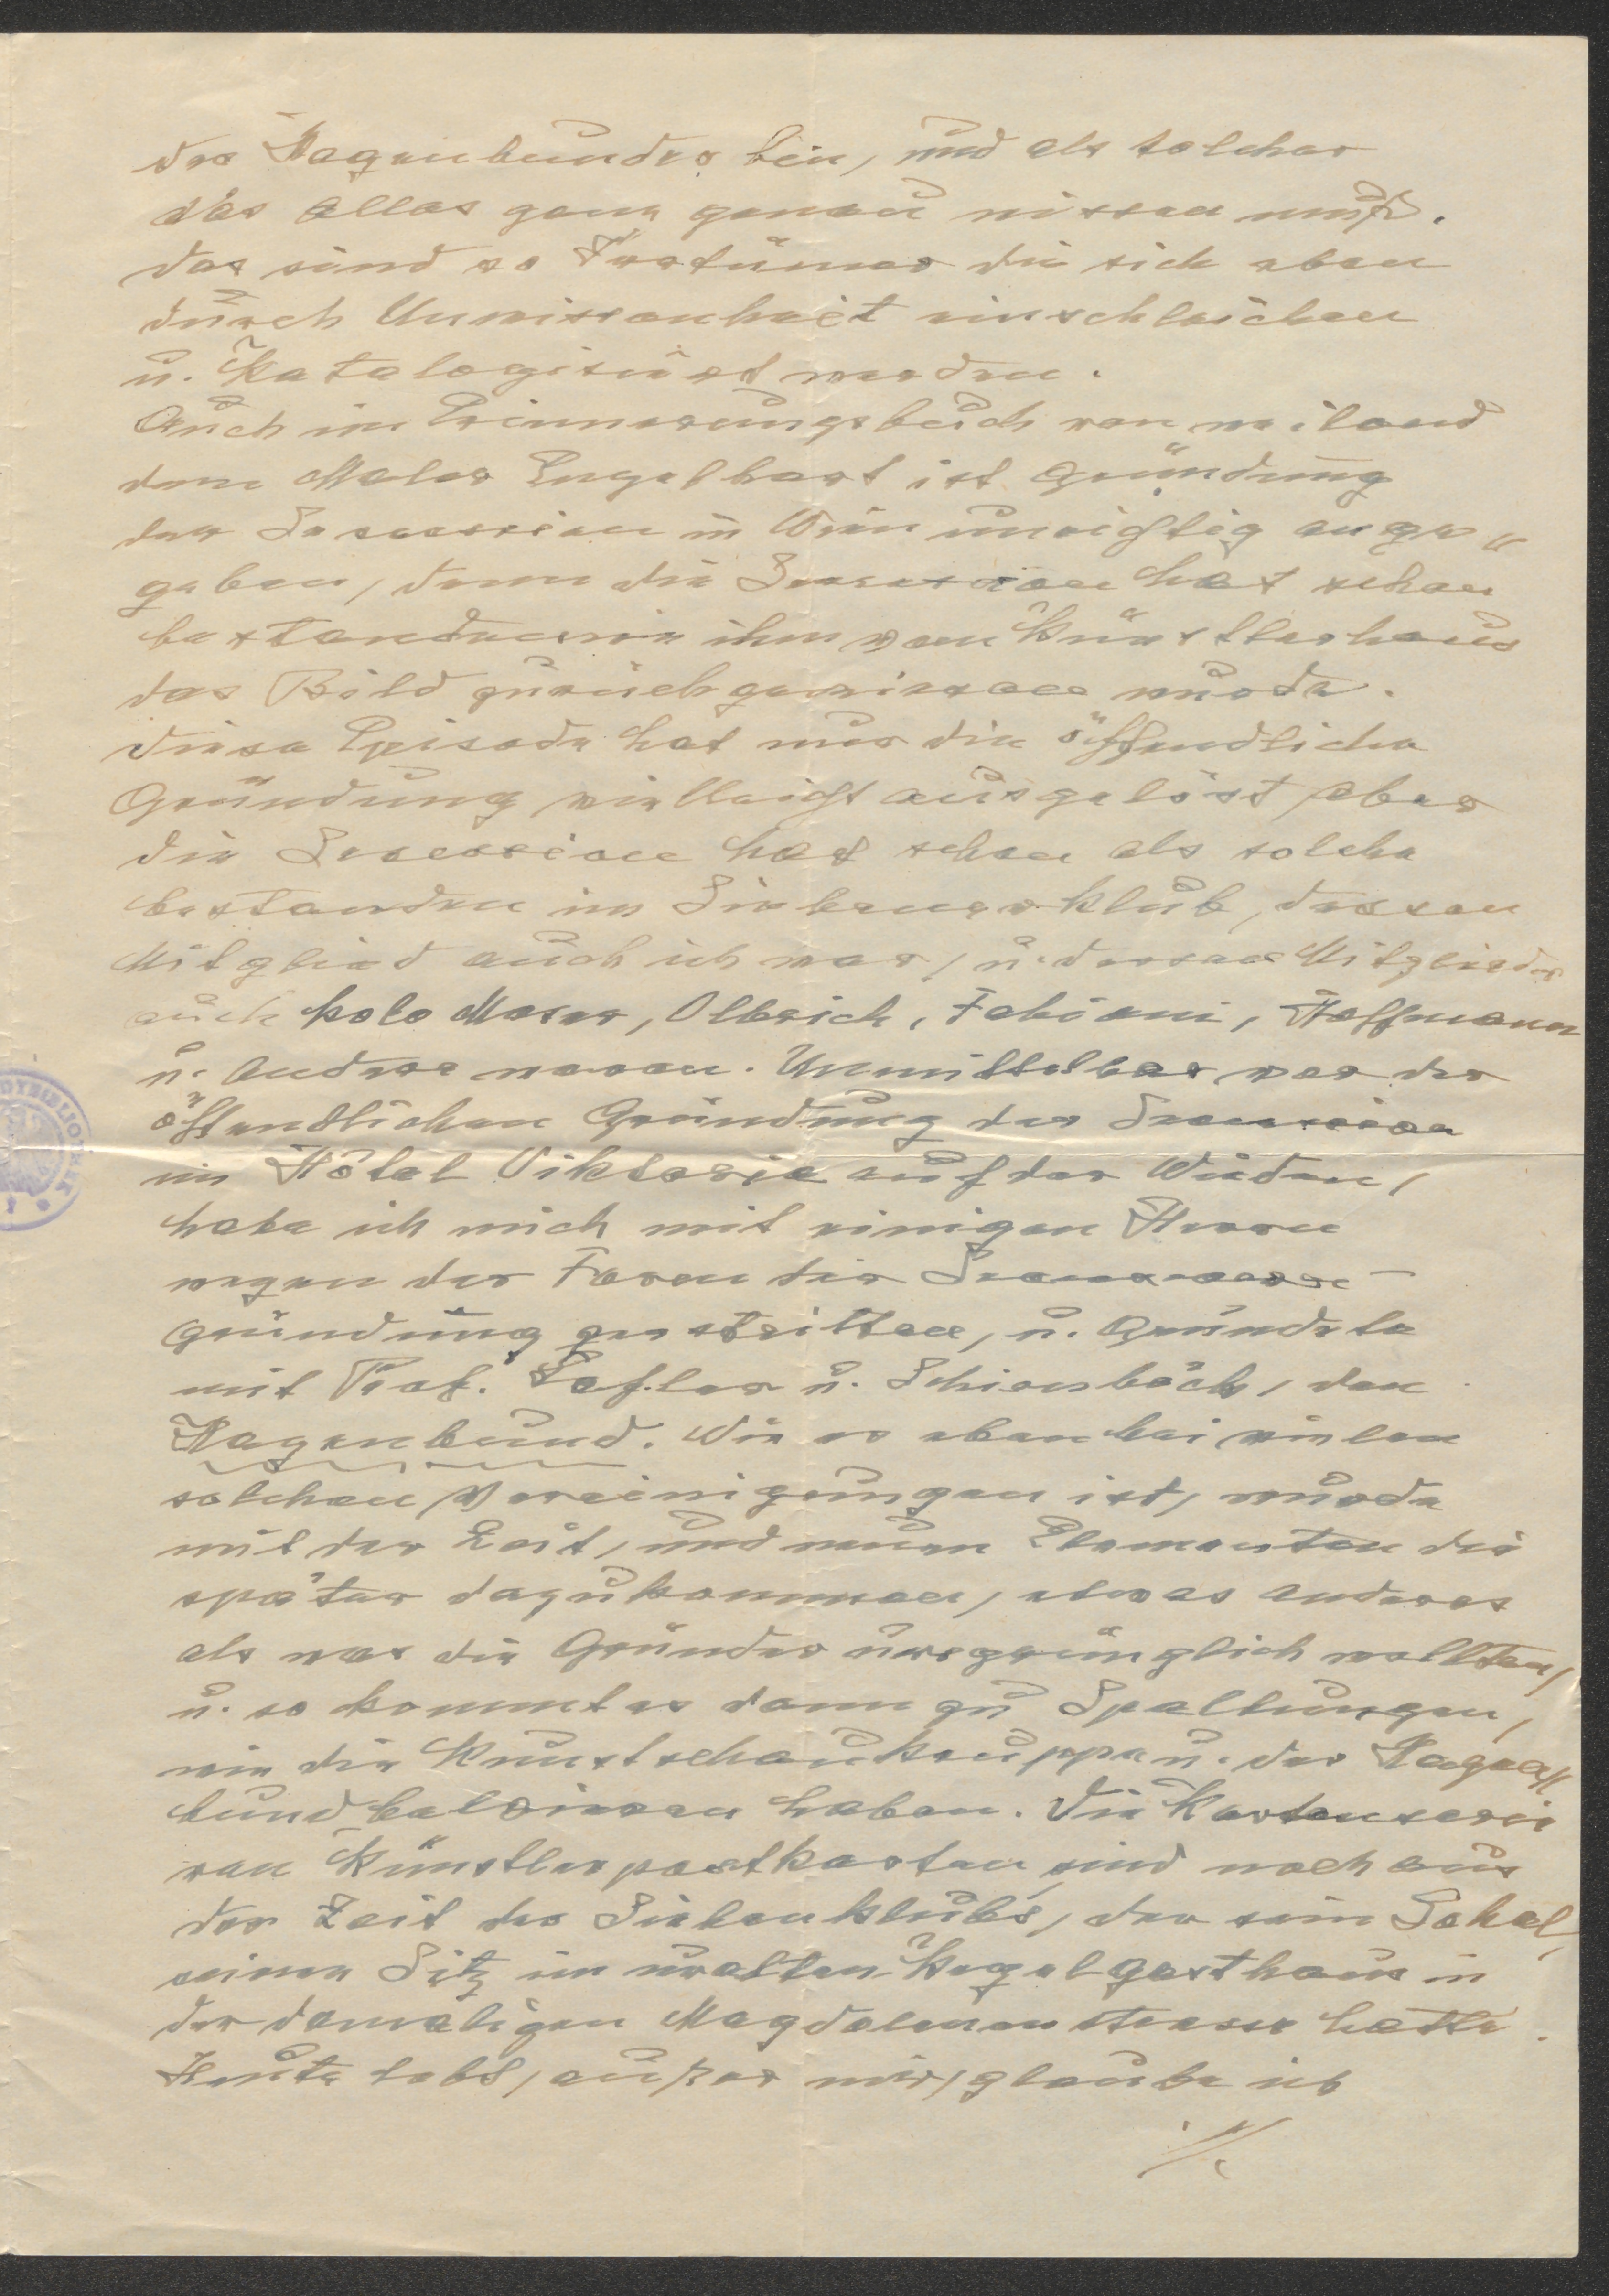 des Hagenbundes bin, und als solcher
das alles ganz genau wissen muß.
Das sind so Irrtümer die sich eben
durch Unwissenheit einschleichen
u. Katalogisiert werden.
Auch im Erinnerungsbuch von weiland
dem Maler Engelhart ist Gründung
der Secession in Wien unrichtig ange„
geben, denn die Secession hat schon
bestanden wie ihm vom Künstlerhaus
das Bild zurückgewiesen wurde.
Diese Episode hat nur die öffendliche
Gründung vielleicht ausgelöst, aber
die Secession hat schon als solche
bestanden im Siebenerklub, dessen
Mitglied auch ich war, u. dessen Mitglieder
auch Kolo Moser, Olbrich, Fabiani, Hoffmann
u. andere waren. Unmittelbar vor der
öffendlichen Gründung der Secession
im Hotel Viktoria auf der Wieden,
habe ich mich mit einigen Herren
wegen der Form der
gründung gestritten, u. gründete
mit Prof. Lefler u. Schienböck, den
Hagenbund. Wie es eben bei vielen
solchen Vereinigungen ist, wurde
mit der Zeit, und neuen Elementen die
später dazukommen, etwas anderes
als was die Gründer ursprünglich wollten,
u. so kommt es dann zu Spaltungen,
wie die Kunstschaugruppe u. der Hagen„
bund bewiesen haben. Die Kartenserie
von Künstlerpostkarten sind noch aus
der Zeit des Siebenklubs, der sein Lokal,
seinen Sitz im uralten Kegelgasthaus in
der damaligen Magdalenenstrasse hatte.
Heute lebt, außer mir, glaube ich
./.